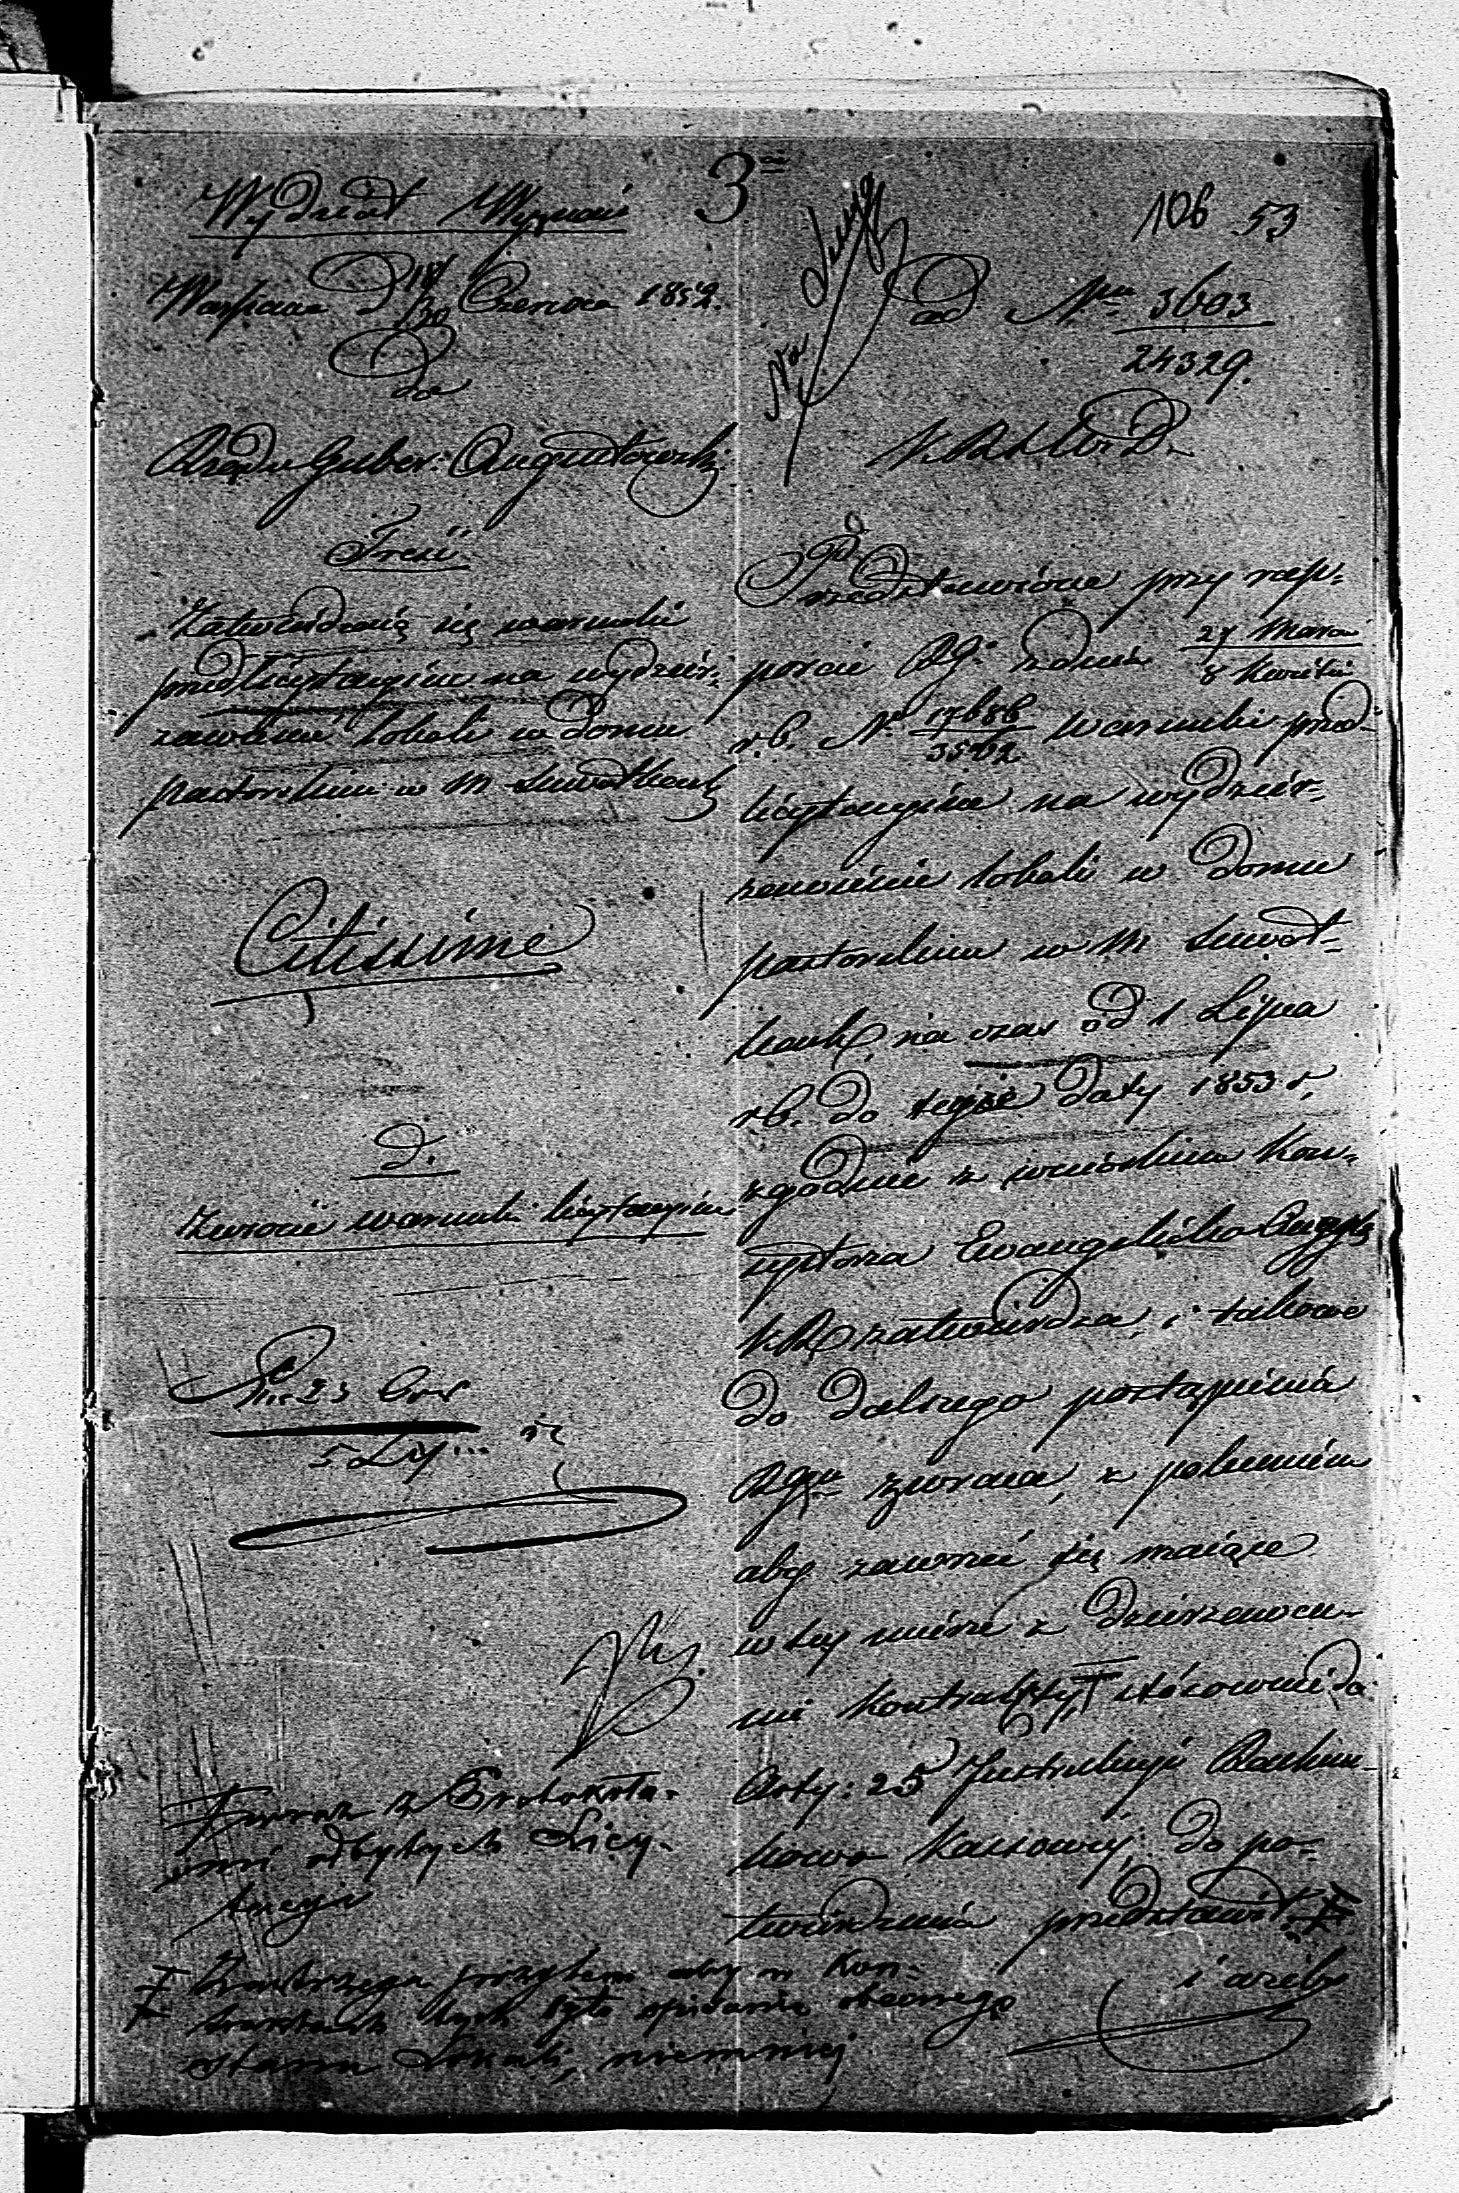 3
106 53
Wydział Wyznań
Warszawa D 18/30 Czerwca 1852.
Do
Rządu Guber: Augustowski
Treść
Zatwierdzają się warunki
przedlicytacyjne na wydzier-
żawienie lokali w Domu
pastorskim w m Suwałkach
Citissime
d.
Zwrócić warunki licytacyjne
23 Czer
5 Lip
oraz z Protokóła-
mi odbytych Licy-
tacyi
Zastrzega przytem aby w Kon-
traktach tych było opisanie obecnego
stanu Lokali, niemniej
ad Nru 3603
24329.
K.R.S.W.D.
Przedstawione przy rap-
porcie RG. z dnia 27 Marca
8 Kwiet
r.b. Nr 17686
35 warunki przed-
licytacyjne na wydzier-
żawienie lokali w Domu
pastorskim w m Suwał-
kach, na czas od 1 Lipca
r.b. do tejże daty 1853 r,
zgodnie z wnioskiem Kon-
systorza Ewangelicko Augsb
KR zatwierdza, i takowe
do dalszego postąpienia
RGu zwraca, z poleceniem
aby zawrzeć się mające
w tej mierze z Dzierżawca-
mi kontrakty, stósownie do
Arty: 25 Instrukcyi Rachun-
kowo Kassowéj, do po-
twierdzenia przedstawił